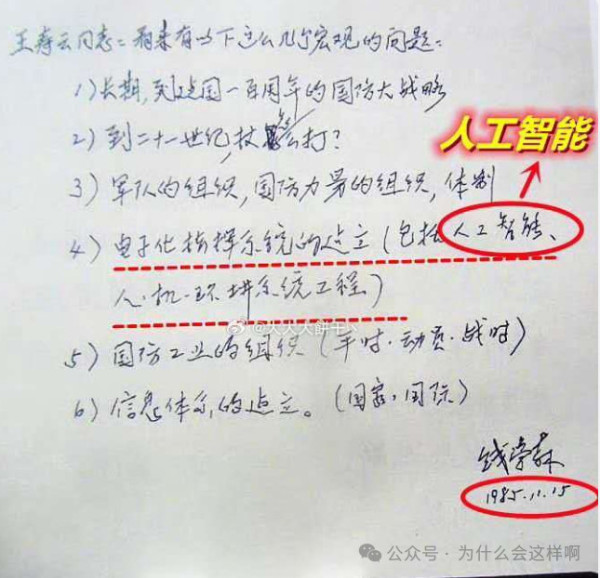 王寿云同志：看来有以下这么几个宏观的问题：
1）长期，到建国一百周年的国防大战略
2）到二十一世纪，仗怎么打？
人工智能
3）军队的组织，国防力量的组织，体制
4）电子化指挥系统的建立（包括人工智能、
人·机·环境系统工程）
5）国防工业的组织（平时·动员·战时）
6）信息体系的建立。（国家，国际）
钱学森
1985.11.15
公众号·为什么会这样啊